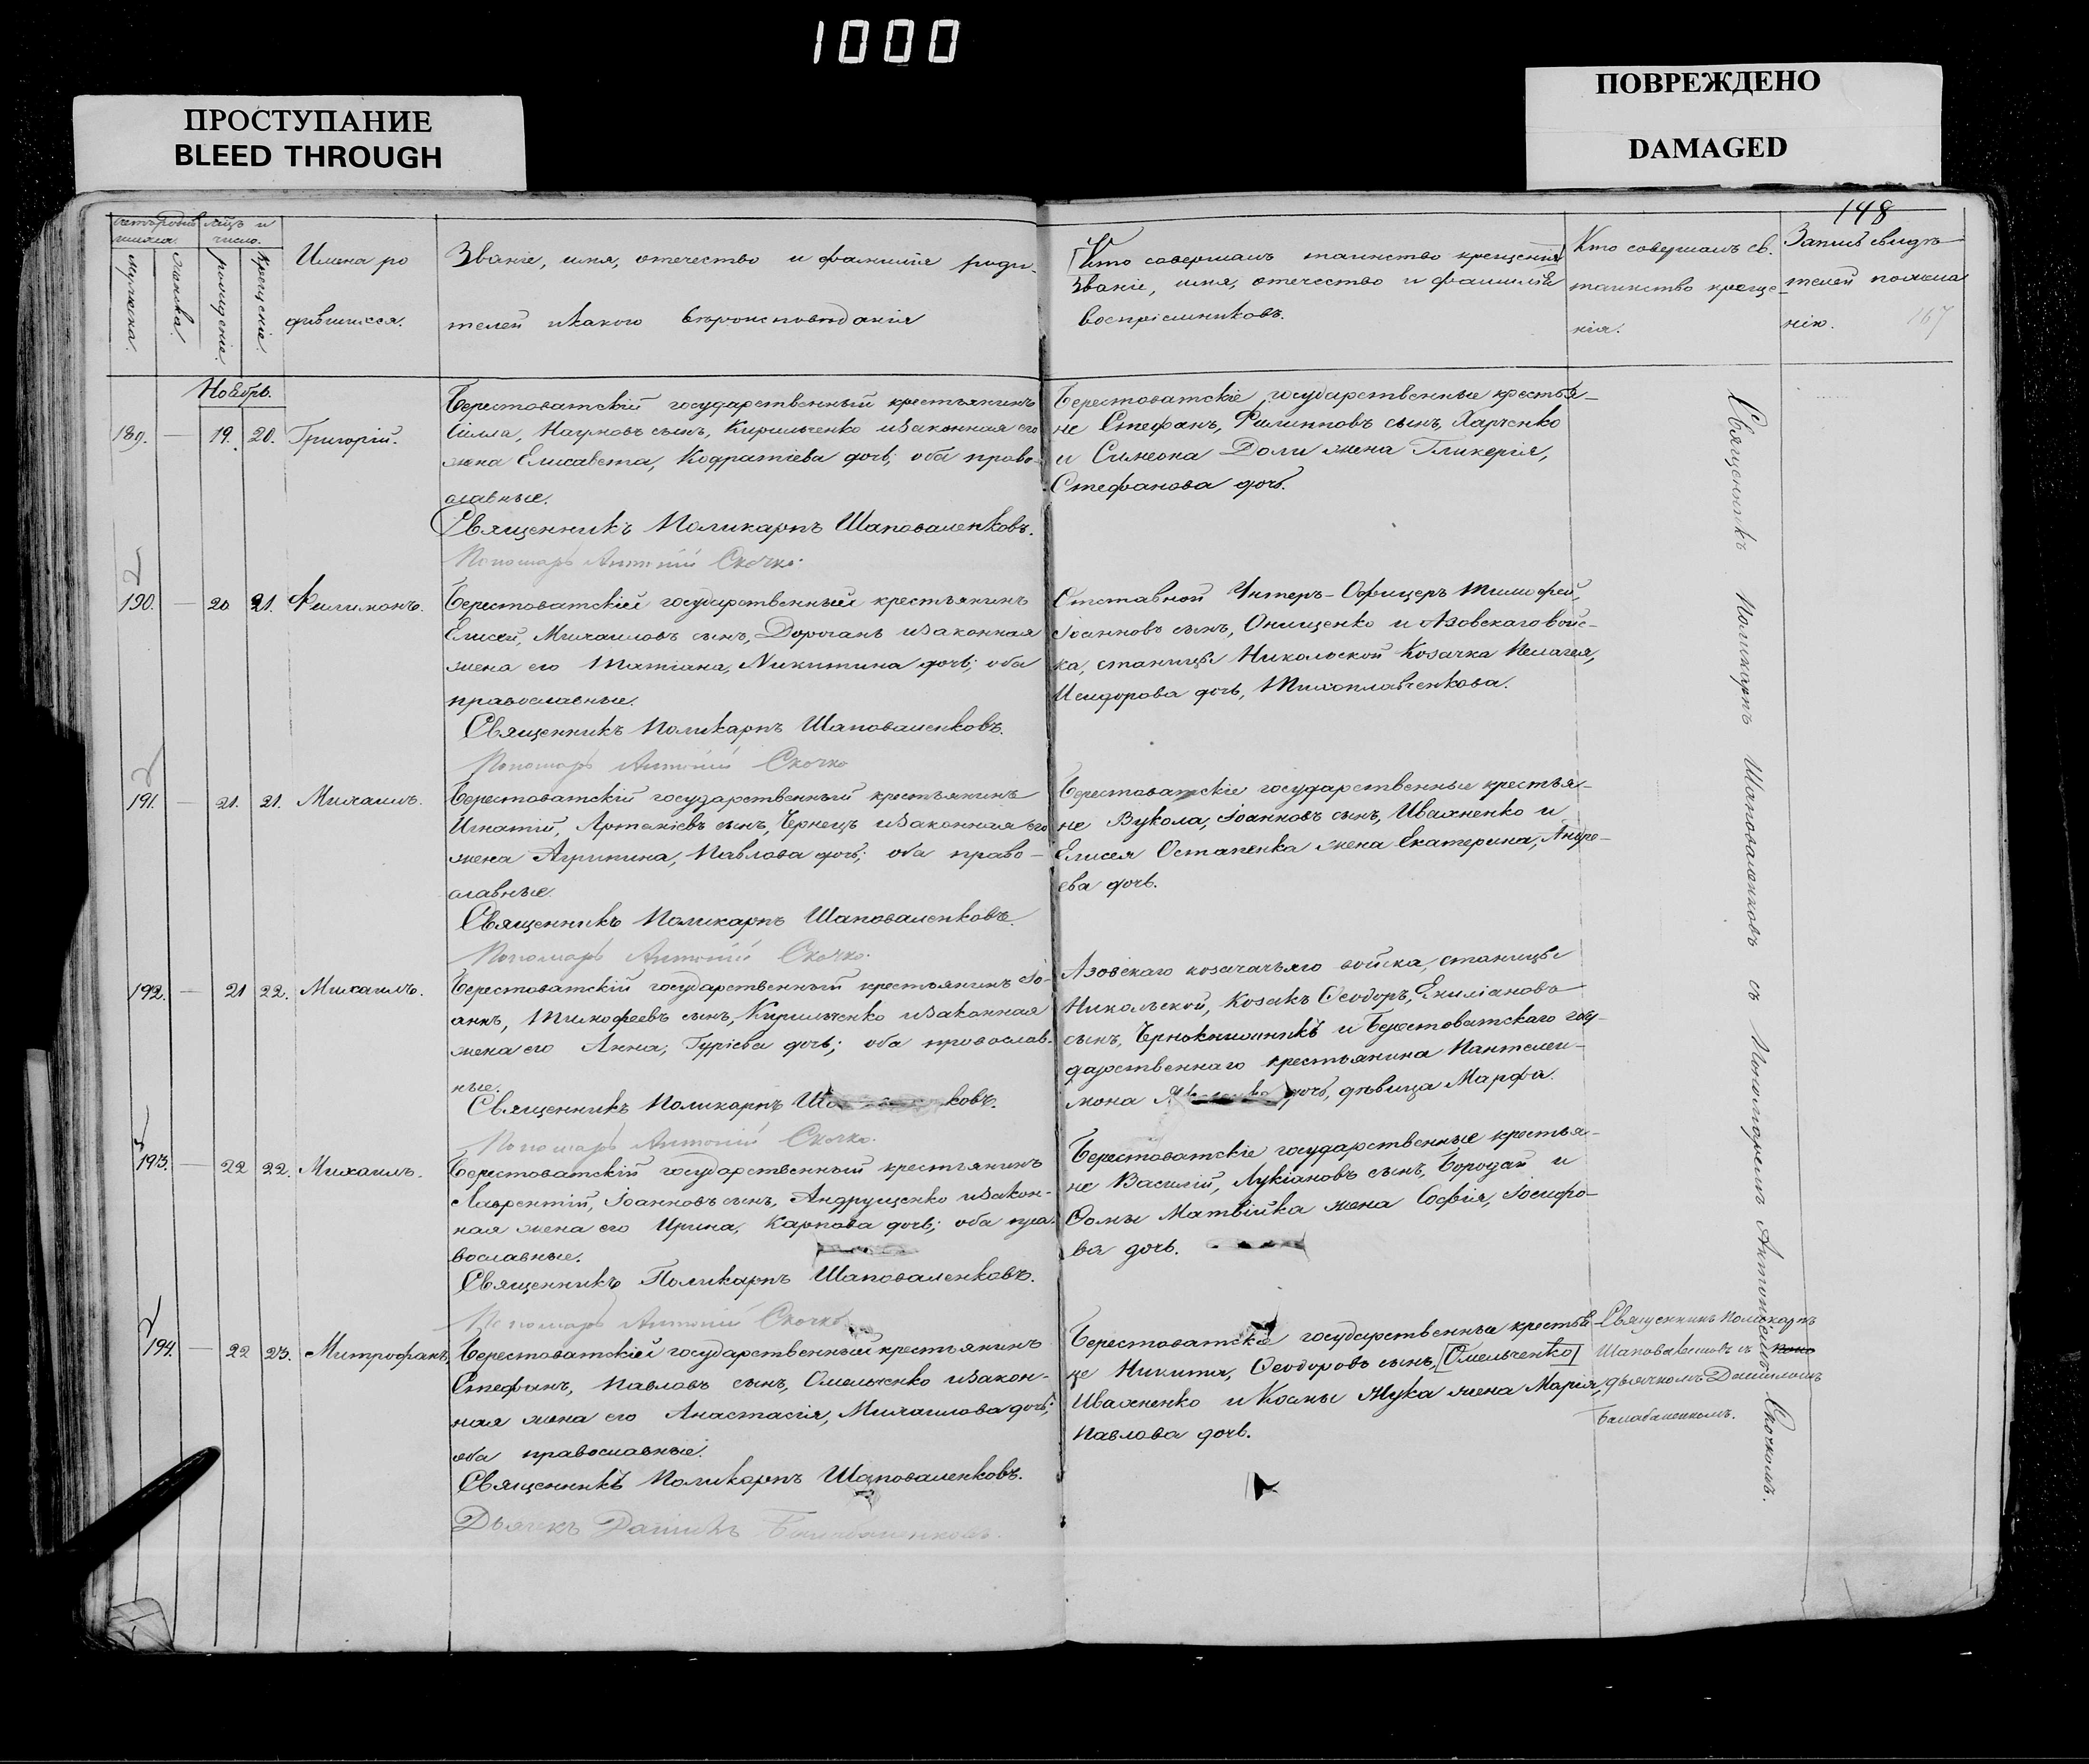 1000
ПРОСТУПАНИЕ
BLEED THROUGH
ПОВРЕЖДЕНО
DAMAGED
148
167
Мужеска.
Женска.
рожденіе.
Крещеніе.
Имена ро
дившихся.
Званіе, имя, отечество и фамилія роди-
телей и какого вѣроисповѣданія
[Кто совершалъ таинство крещенія]
Званіе, имя, отечество и фамилія
воспріемниковъ.
Кто совершалъ св.
таинство креще
нія.
Запись свидѣ
телей по жела
нію.
Ноябрь.
189. — 19. 20. Григорій.
Берестоватскій государственный крестьянинъ
Сілла, Наумовъ сынъ, Кирильченко и законная его
жена Елисавета, Кодратіева дочь; оба право-
славные.
Священникъ Поликарпъ Шаповаленковъ.
Пономарь Антоній Скочко.
Берестоватскіе государственные крестья-
не Стефанъ, Филипповъ сынъ, Харченко
и Симеона Доли жена Гликерія,
Стефанова дочь.
190. — 20 21. Филимонъ.
Берестоватскій государственный крестьянинъ
Елисей, Михаиловъ сынъ, Дороганъ и законная
жена его Татіана, Никитина дочь; оба
православные.
Священникъ Поликарпъ Шаповаленковъ.
Пономарь Антоній Скочко
Отставной Унтеръ-Офицеръ Тимофей,
Іоанновъ сынъ, Онищенко и Азовскаго войс-
ка, станицы Никольской Козачка Пелагея,
Исидорова дочь, Тихоплавченкова.
191. — 21. 21. Михаилъ.
Берестоватскій государственный крестьянинъ
Игнатій, Артеміевъ сынъ, Чернецъ и законная его
жена Агрипина, Павлова дочь; оба право-
славные.
Священникъ Поликарпъ Шаповаленковъ.
Пономарь Антоній Скочко.
Берестоватскіе государственные крестья-
не Вукола, Іоанновъ сынъ, Ивахненко и
Елисея Остапенка жена Екатерина, Андре-
ева дочь.
192. — 21 22. Михаилъ.
Берестоватскій государственный крестьянинъ Іо-
аннъ, Тимофеевъ сынъ, Кирильченко и законная
жена его Анна, Гуріева дочь; оба православ-
ные.
Священникъ Поликарпъ Ша ковъ.
Пономарь Антоній Скочко.
Азовскаго козачьяго войска, станицы
Никольской, Козакъ Ѳеодоръ, Емиліановъ
сынъ, и Берестоватскаго госу-
дарственнаго крестьянина Пантелеи-
мона дочь, дѣвица Марфа.
193. — 22 22. Михаилъ.
Берестоватскій государственный крестьянинъ
Лаврентій, Іоанновъ сынъ, Андрущенко и закон-
ная жена его Ирина, Карпова дочь; оба пра-
вославные.
Священникъ Поликарпъ Шаповаленковъ.
Пономарь Антоній Скочко
Берестоватскіе государственные крестья-
не Василій, Лукіановъ сынъ, Бородай и
Ѳомы Матвійка жена Софія, Іосифо-
ва дочь.
194. — 22 23. Митрофанъ,
Берестоватскій государственный крестьянинъ
Стефанъ, Павловъ сынъ, Омельченко и закон-
ная жена его Анастасія, Михаилова дочь;
оба православные.
Священникъ Поликарпъ Шаповаленковъ.
Дьячекъ Даніилъ
Берестоватскіе государственные крестья
не Никита, Ѳеодоровъ сынъ, [Омельченко]
Ивахненко и Космы Жука жена Марія,
Павлова дочь.
Священникъ Поликарпъ
Шаповаленковъ съ поно
дьячкомъ Даніиломъ
Балабаненкомъ.
Священникъ Поликарпъ Шаповаленковъ съ Пономаремъ Антоніемъ Скочкомъ.